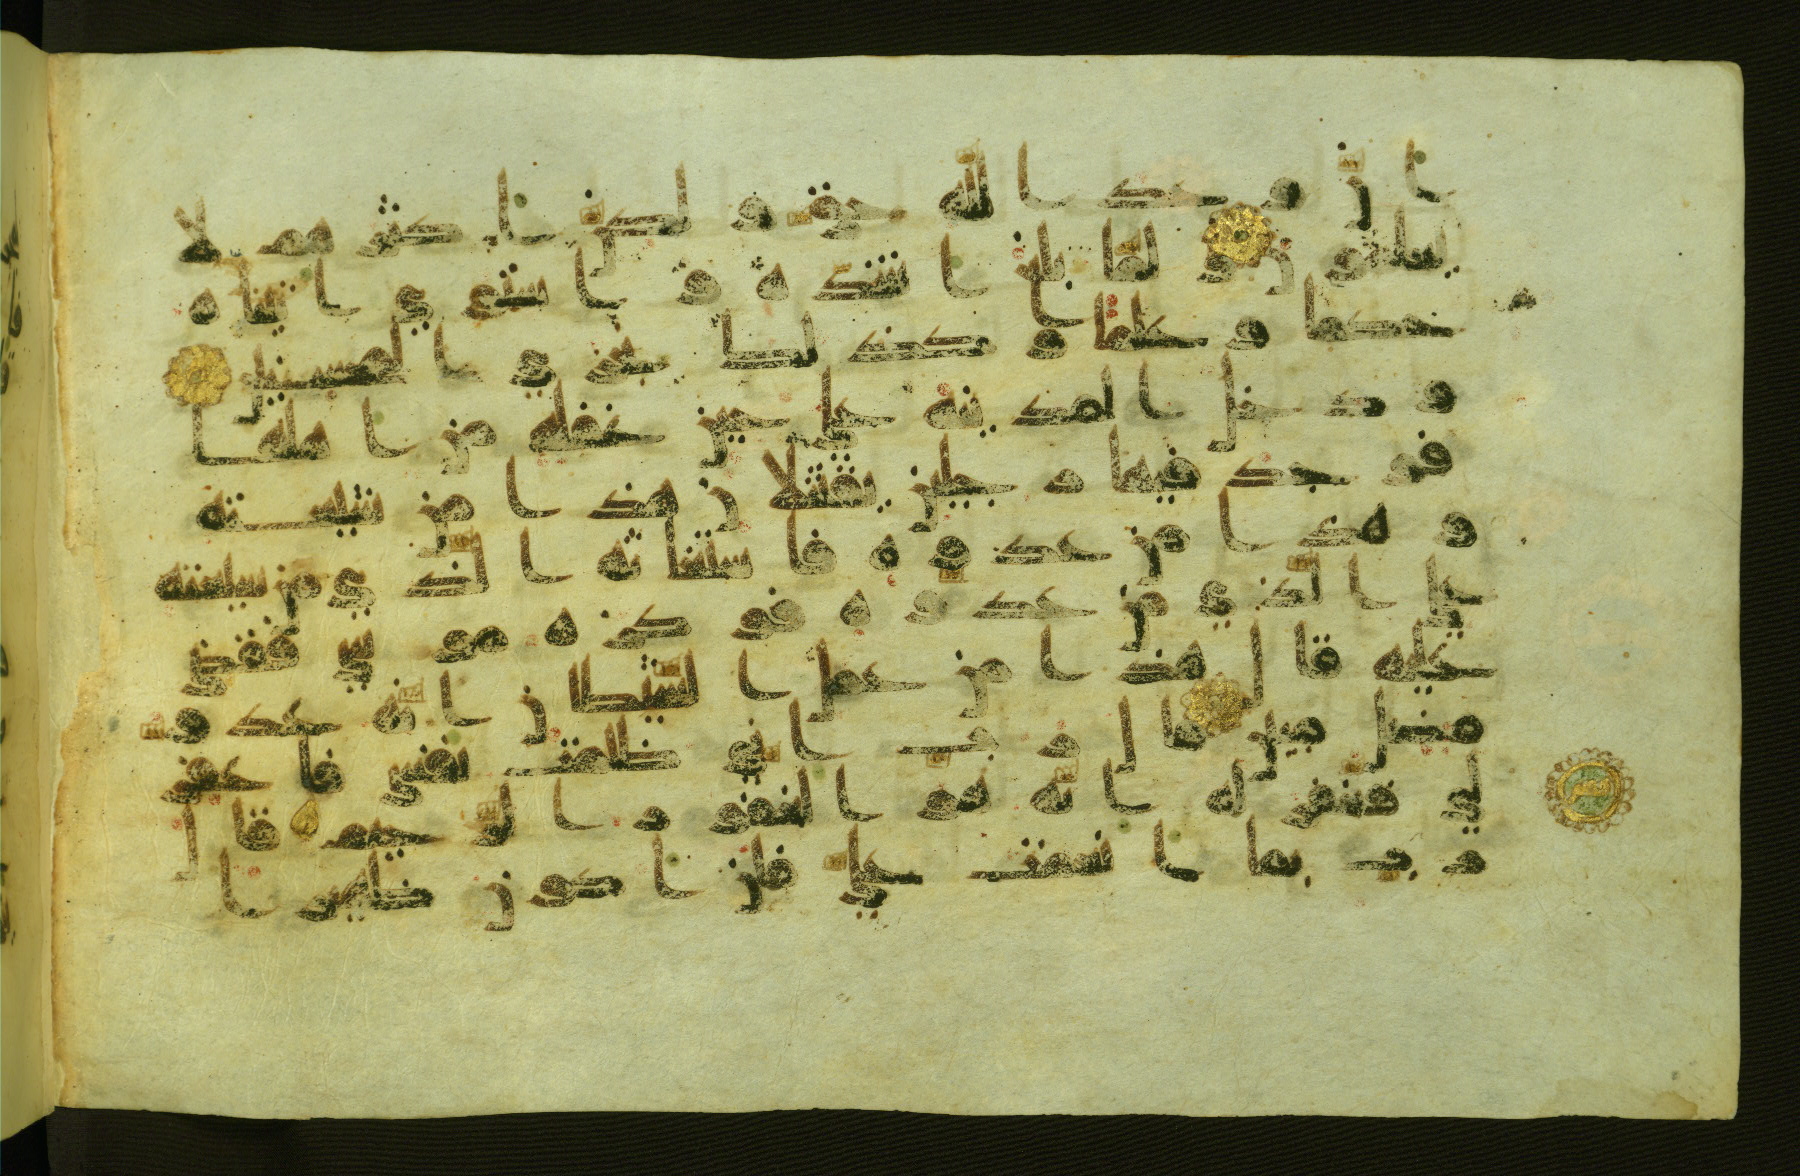 ان وعد الله حق ولكن اكثرهم لا
يعلمون ولما بلغ اشده و استوي اتينه
حكما و علما و كذلك نجزي المحسنين
و دخل المدينه علي حين غفله من اهلها
فوجد فيها رجلين يقتتلان هذا من شيعته
و هذا من عدوه فاستغاثه الذي من شيعته
علي الذي من عدوه فوكزه موسي فقضي
عليه قال هذا من عمل الشيطان انه عدو
مضل مبين قال رب اني ظلمت نفسي فاغفر
لي فغفر له انه هو الغفور الرحيم قال
رب بما انعمت علي فلن اكون ظهيرا